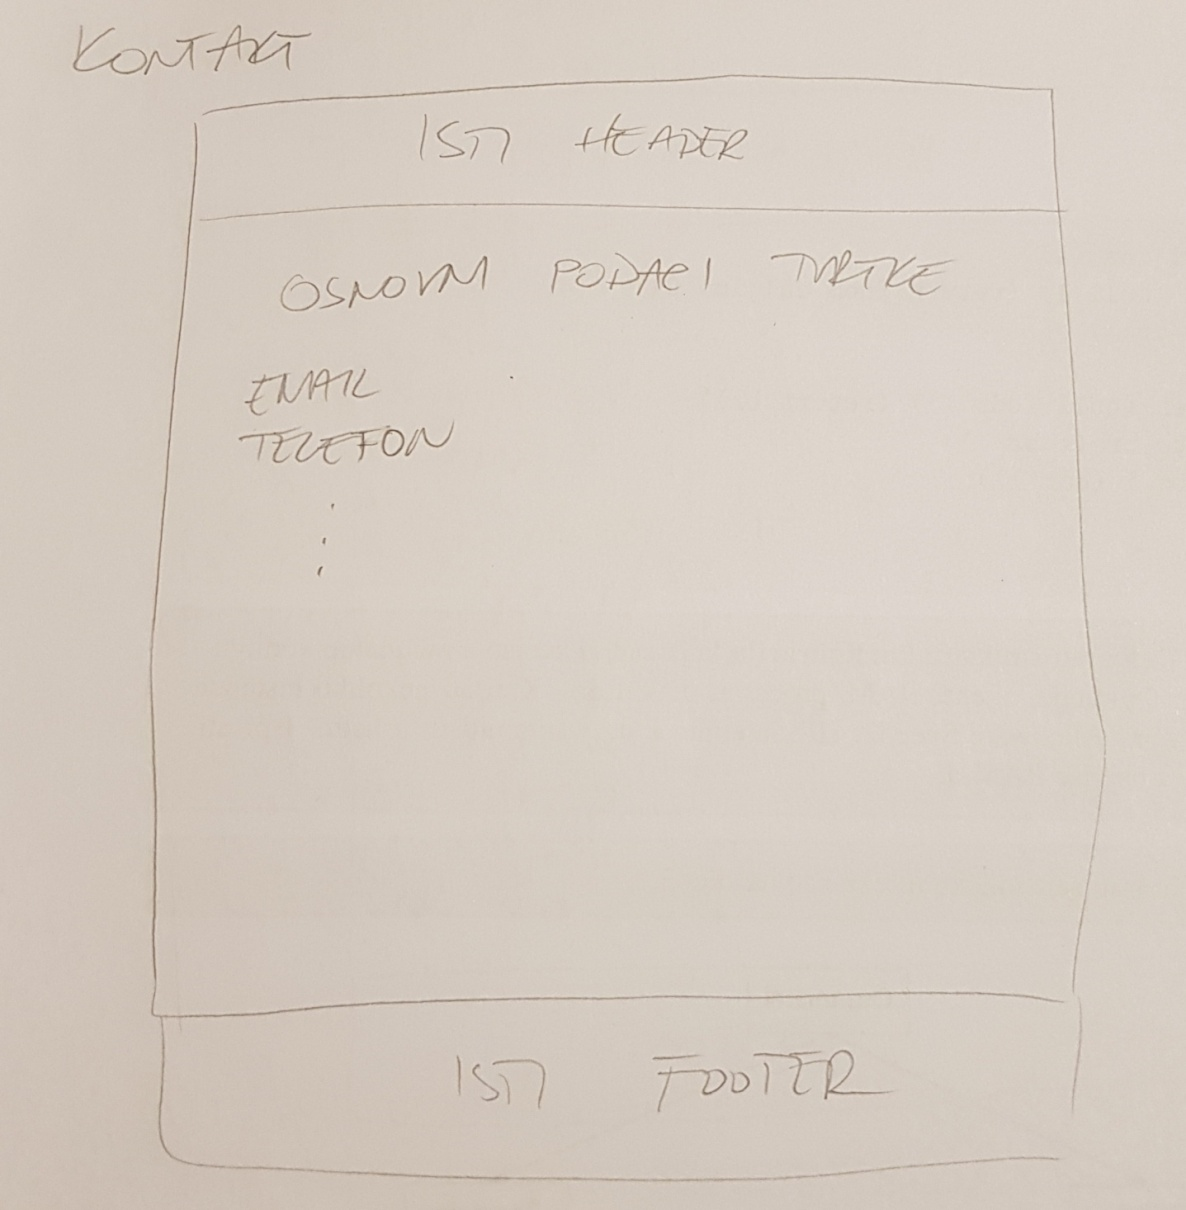 KONTAKT
ISTI HEADER
OSNOVNI PODACI TVRTKE
EMAIL
TELEFON
ISTI FOOTER